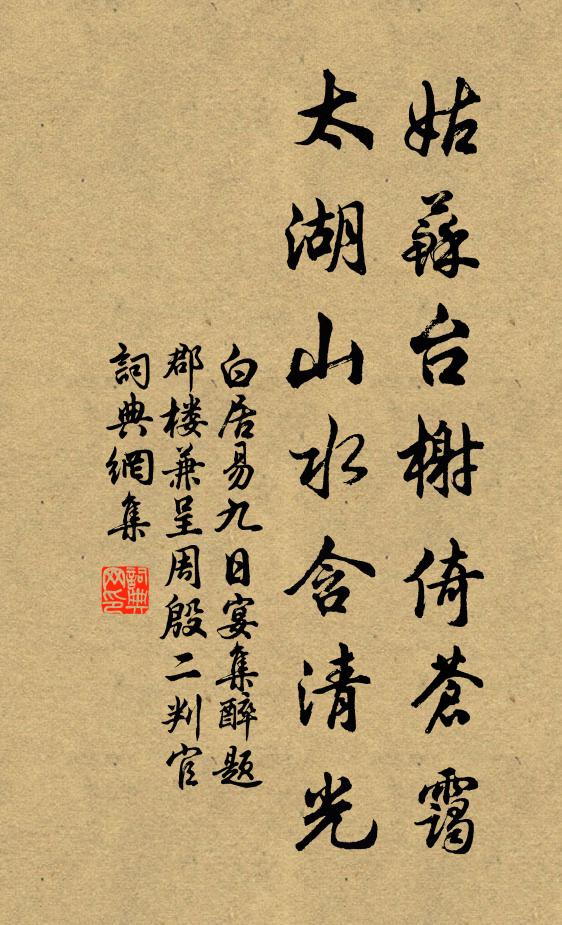 姑蘇台榭倚蒼靄
太湖山水含清光
白居易九日宴集醉题
郡楼兼呈周殷二判官
詞典網集
詞典网印